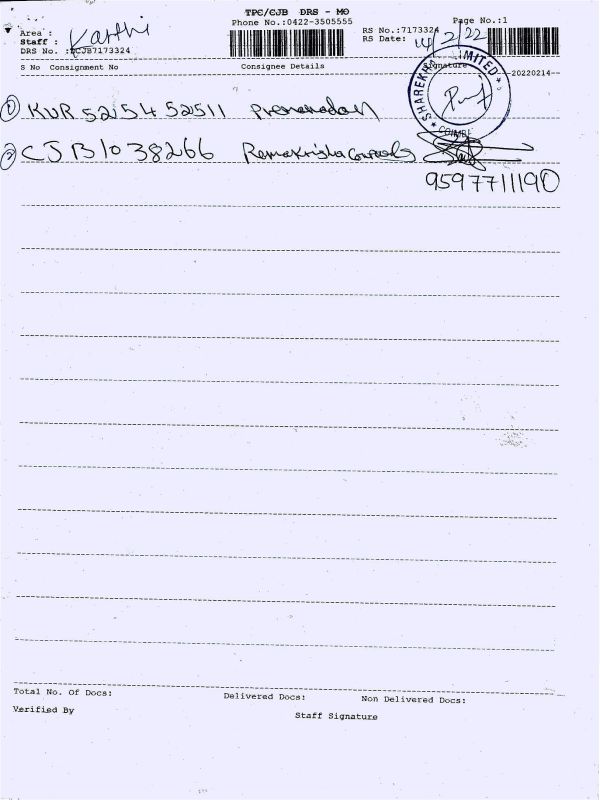 TPC/CJB DRS - MO
Phone No.:0422-3505555
Page No.:1
Area :
Staff : Karthi
DRS No. :CJB7173324
RS No.:7173324
RS Date: 14/2/22
S No Consignment No Consignee Details Signature
--20220214--
SHAREKHAN LIMITED
COIMB
1 KUR 521545 2511
2 CJB1038266
9597711190
Total No. Of Docs: Delivered Docs: Non Delivered Docs:
Verified By Staff Signature